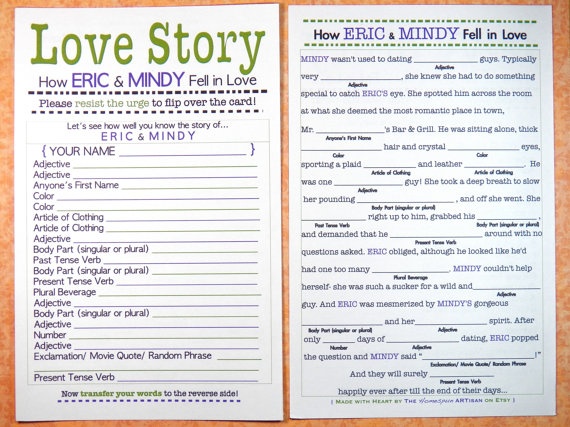 Love Story
How ERIC & MINDY Fell in Love
Please resist the urge to flip over the card!
Let's see how well you know the story of...
ERIC & MINDY
{ YOUR NAME ____________ }
Adjective
Adjective
Anyone's First Name
Color
Color
Article of Clothing
Article of Clothing
Adjective
Body Part (singular or plural)
Past Tense Verb
Body Part (singular or plural)
Present Tense Verb
Plural Beverage
Adjective
Body Part (singular or plural)
Adjective
Number
Adjective
Exclamation/ Movie Quote/ Random Phrase
Present Tense Verb
Now transfer your words to the reverse side!
How ERIC & MINDY Fell in Love
MINDY wasn't used to dating ____________ guys. Typically
Adjective
very ____________, she knew she had to do something
Adjective
special to catch ERIC'S eye. She spotted him across the room
at what she deemed the most romantic place in town,
Mr. ____________'s Bar & Grill. He was sitting alone, thick
Anyone's First Name
____________ hair and crystal ____________ eyes,
Color Color
sporting a plaid ____________ and leather ____________. He
Article of Clothing Article of Clothing
was one ____________ guy! She took a deep breath to slow
Adjective
her pounding ____________, and off she went. She
Body Part (singular or plural)
____________ right up to him, grabbed his ____________,
Past Tense Verb Body Part (singular or plural)
and demanded that he ____________ around with no
Present Tense Verb
questions asked. ERIC obliged, although he looked like he'd
had one too many ____________. MINDY couldn't help
Plural Beverage
herself- she was such a sucker for a wild and ____________
Adjective
guy. And ERIC was mesmerized by MINDY'S gorgeous
____________ and her ____________ spirit. After
Body Part (singular or plural) Adjective
only ______ days of ____________ dating, ERIC popped
Number Adjective
the question and MINDY said "____________!"
Exclamation/ Movie Quote/ Random Phrase
And they will surely ____________
Present Tense Verb
happily ever after till the end of their days...
{ Made with Heart by The Homespun ARTisan on Etsy }